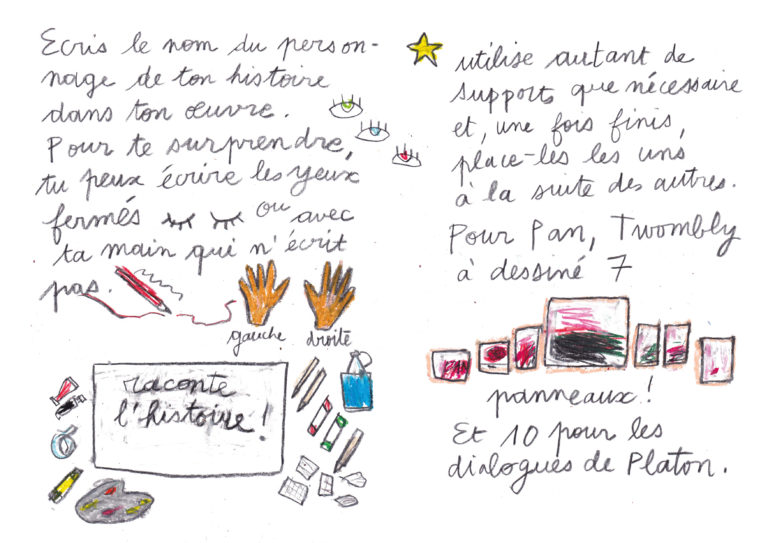 Ecris le nom du person-
nage de ton histoire
dans ton œuvre.
Pour te surprendre,
tu peux écrire les yeux
fermés ou avec
ta main qui n'écrit
pas.
gauche droite
raconte
l'histoire!
utilise autant de
supports que nécessaire
et, une fois finis,
place-les les uns
à la suite des autres.
Pour Pan, Twombly
à dessiné 7
PAN
panneaux!
Et 10 pour les
dialogues de Platon.